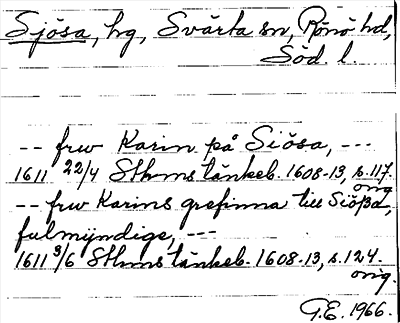 Sjösa, hg, Svärta sn, Rönö hd,
Söd. l.
-- frw Karin på Siösa, ---
1611 22/4 Sthms tänkeb. 1608-13, s. 117.
orig.
-- frw Karins grefinna till Siößa,
fulmyndige, ---
1611 3/6 Sthms tänkeb. 1608-13, s. 124.
orig.
G.E. 1966.